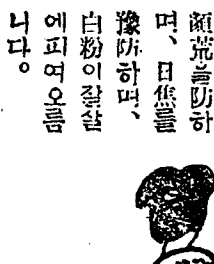 顔荒を防하
며、日焦를
豫防하며、
白粉이잘살
에피여오름
니다。